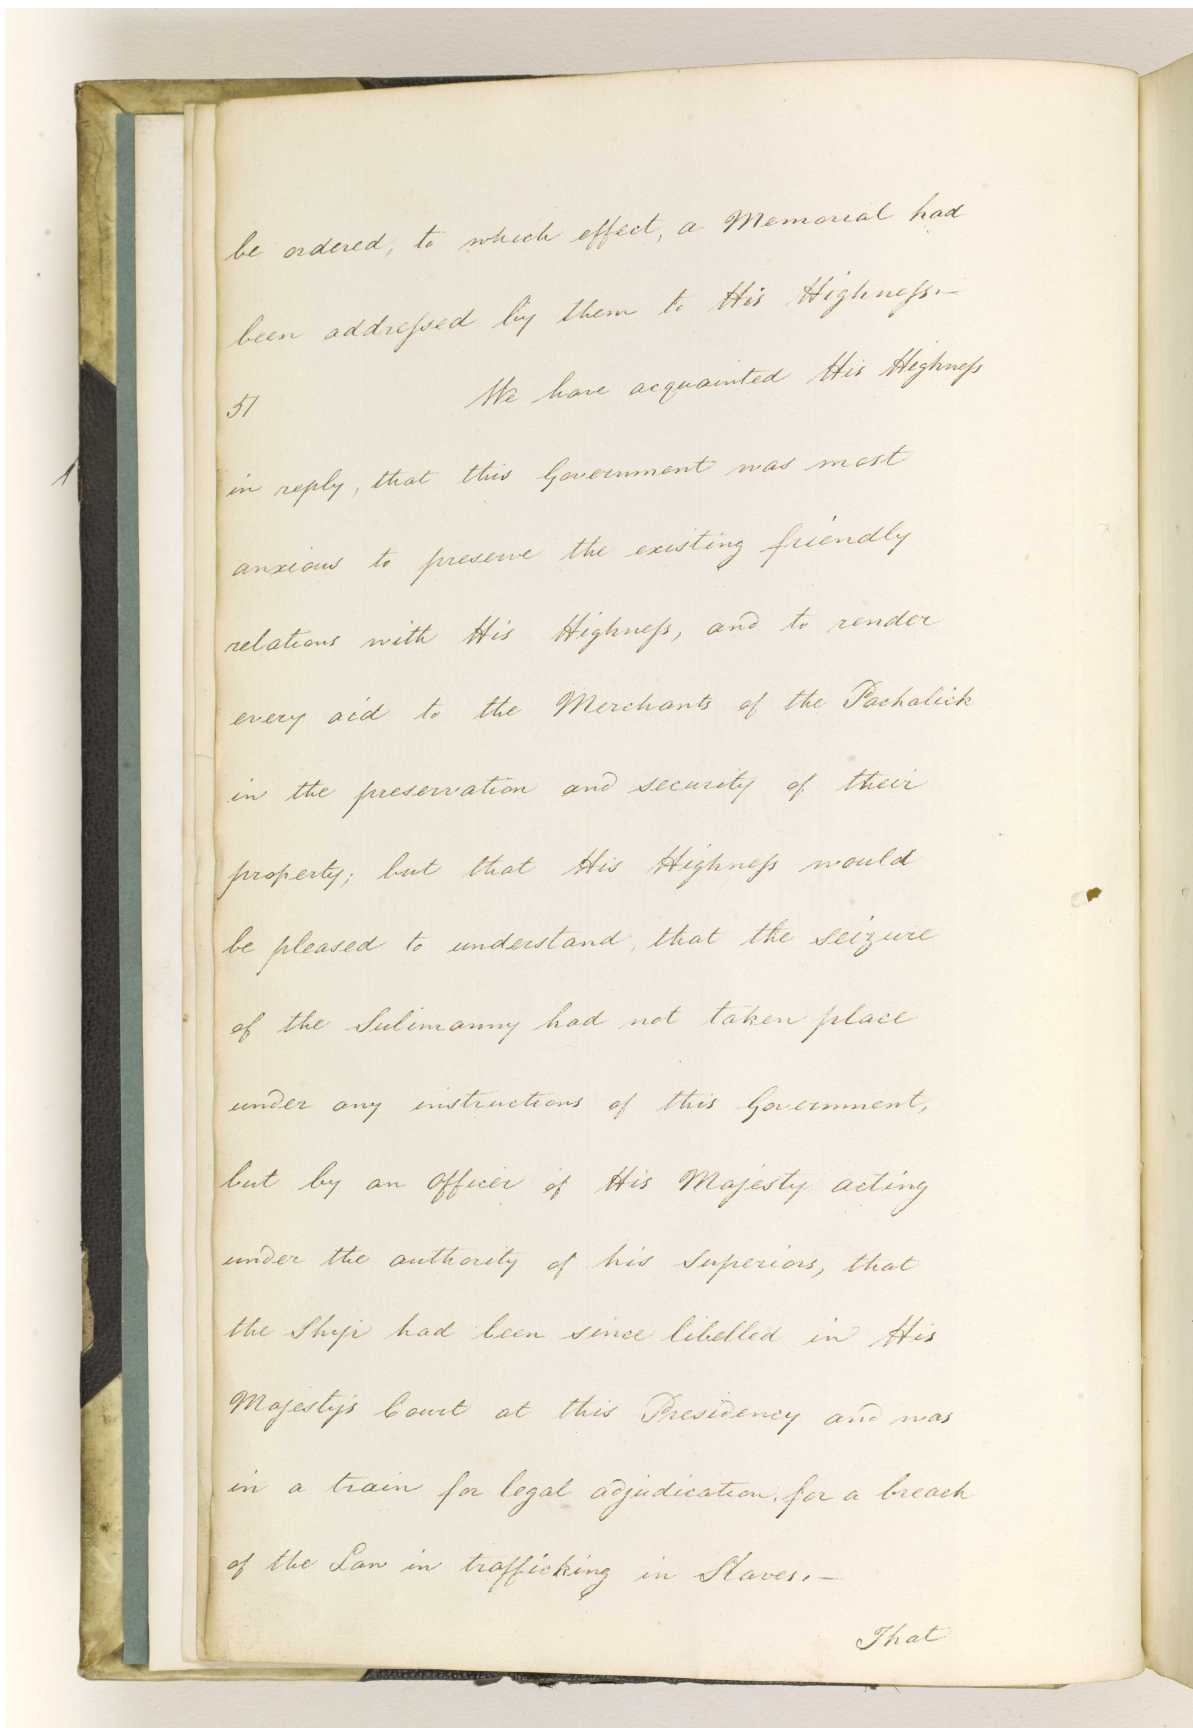 be ordered, to which effect, a Memorial had
been addressed by them to His Highness.—
51 We have acquainted His Highness
in reply, that this Government was most
anxious to preserve the existing friendly
relations with His Highness, and to render
every aid to the Merchants of the Pachalick
in the preservation and security of their
property; but that His Highness would
be pleased to understand, that the seizure
of the Sulimanny had not taken place
under any instructions of this Government,
but by an Officer of His Majesty acting
under the authority of his Superiors, that
the Ship had been since libelled in His
Majesty's Court at this Presidency and was
in a train for legal adjudication, for a breach
of the Law in trafficking in Slaves.—
That